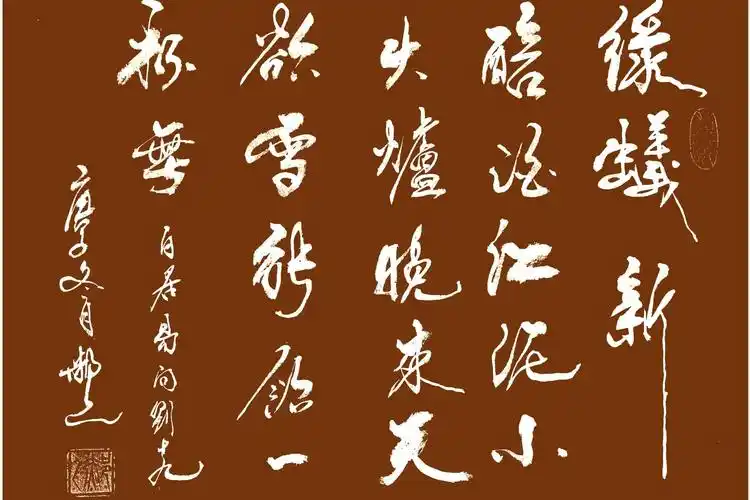 綠蟻新
醅酒红泥小
火爐晚来天
欲雪能飲一
杯無
白居易问劉十九
庚子冬月